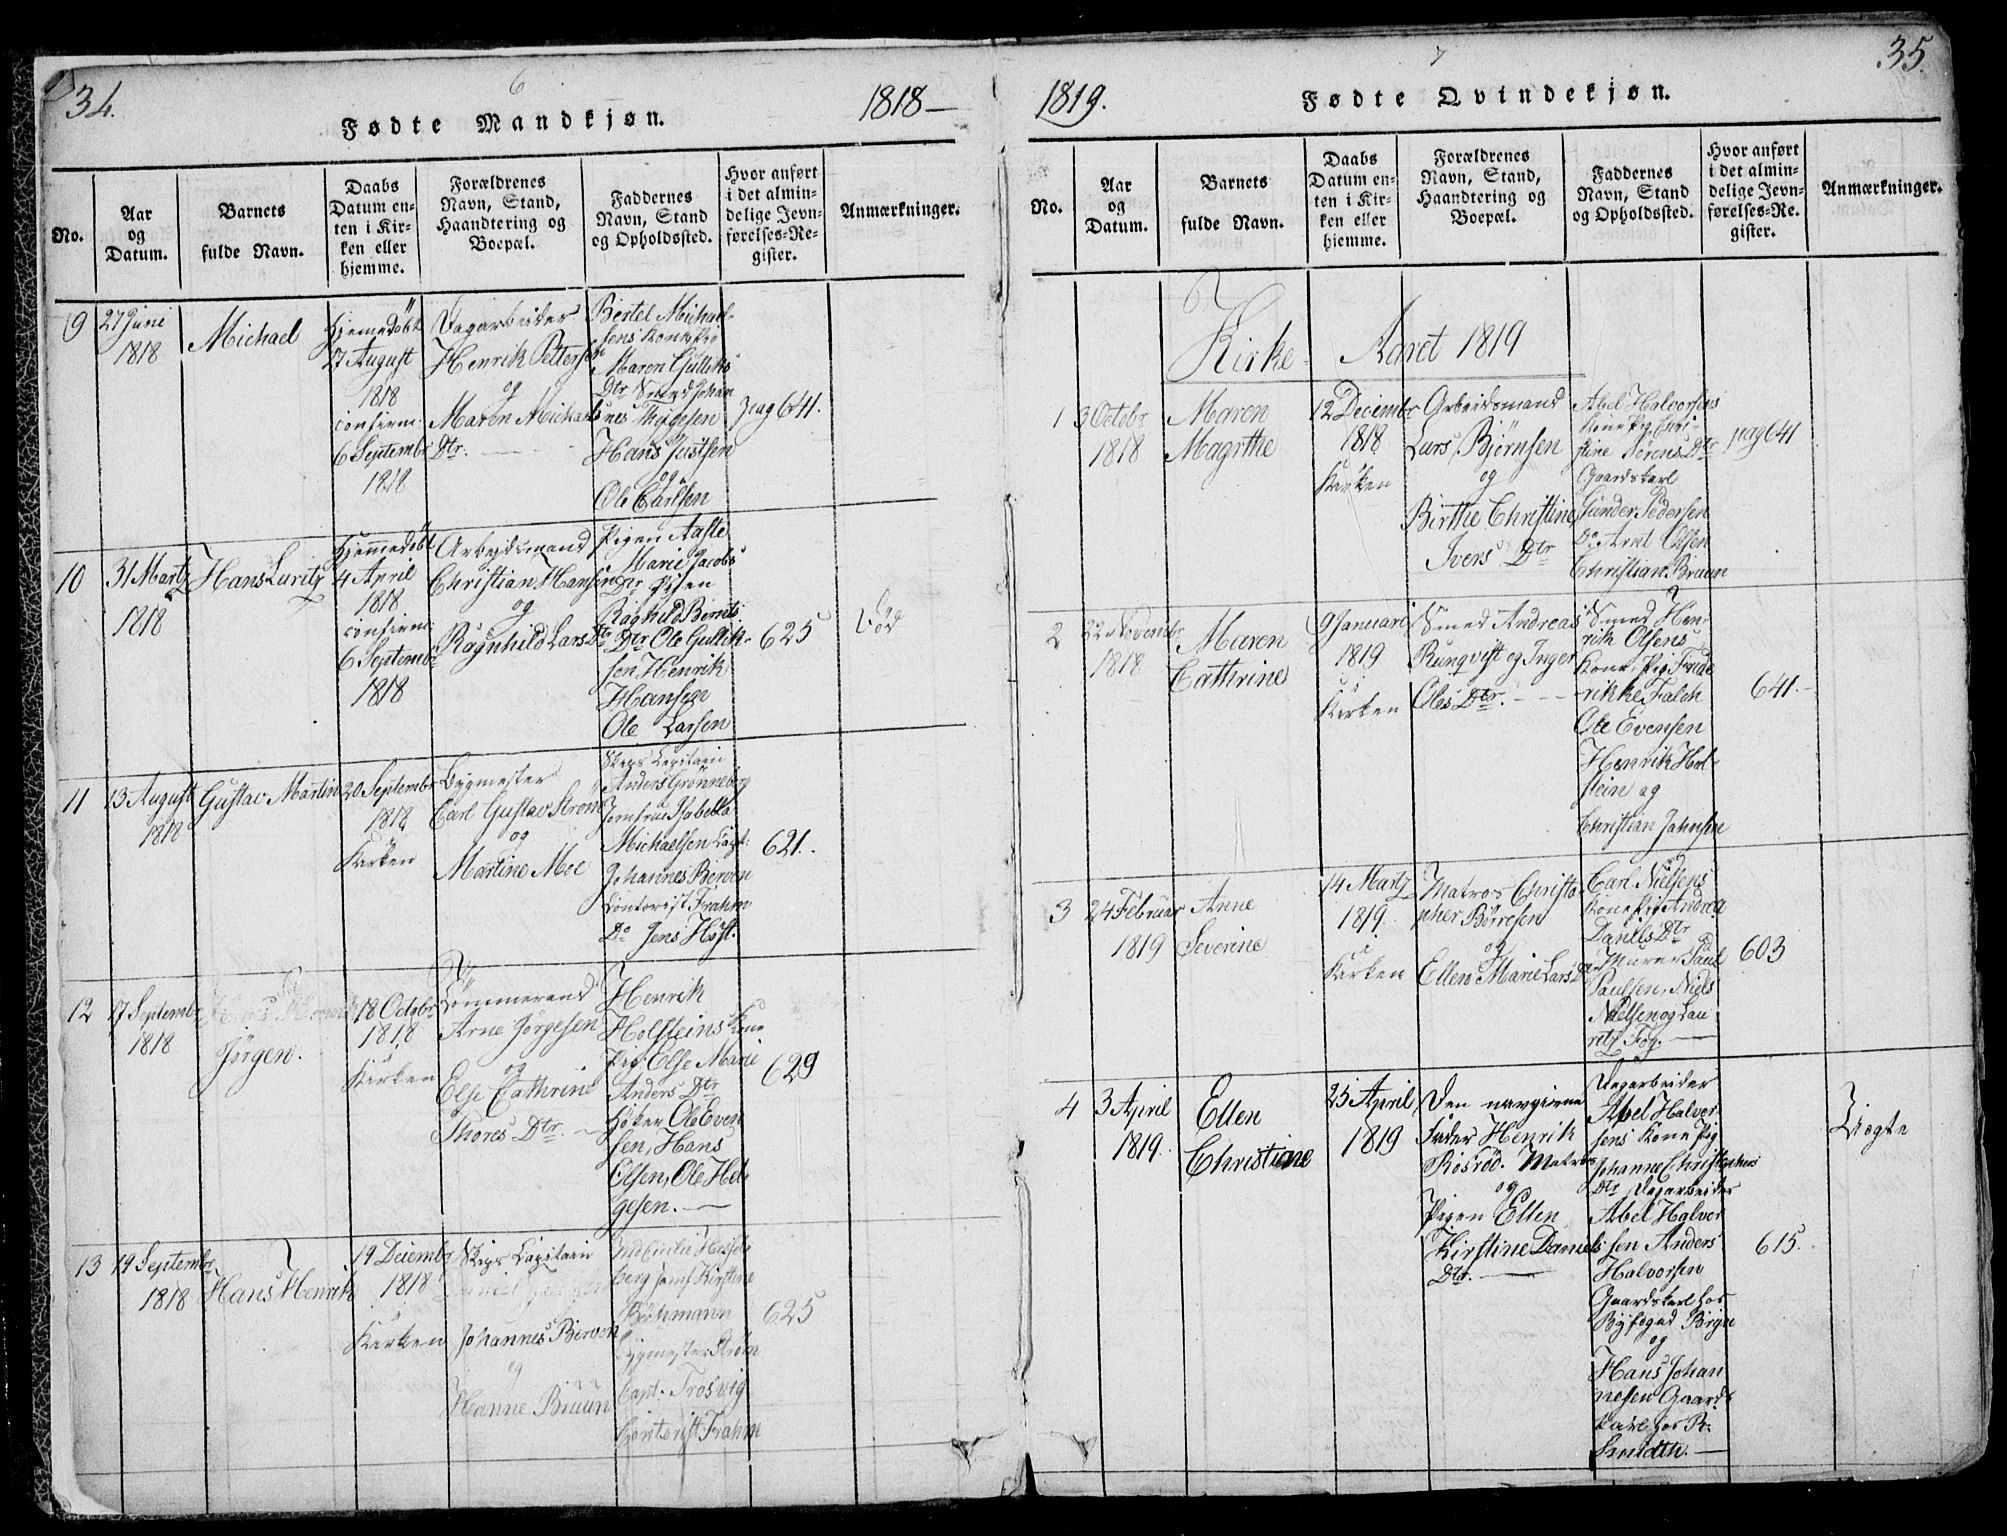 34.
6
1818—
Fødte Mandkjøn.
No.
Aar
og
Datum.
Barnets
fulde Navn.
Daabs
Datum en-
ten i Kir-
ken eller
hjemme.
Forældrenes
Navn, Stand,
Haandtering og
Boepæl.
Faddernes
Navn, Stand
og Opholdssted.
Hvor anført
i det almin-
delige Jevn-
førelses-Re-
gister.
Anmærkninger.
9
27 Juni
1818
Michael
Hjemedöbt
17 August
1818
confirm:
6 Septembr
1818
Dagarbeider
Henrik Pettersen
og
Maren Michaels
Dtr.
Bertel Michael-
sens Kone
Maren Gulliks
Dtr Smed Johan
nes Thygesen
Hans Justsen
og
Ole Carlsen
pag 641.
10
31 Martz
1818
Hans Luritz
Hjemmedöbt
4 April
1818
confirm:
6 Septembr
1818
Arbejdsmand
Christian Hansen
og
Ragnhild Lars Dtr
Pigen Aaste
Marie Jacobs
Dtr Pigen
Ragnhild Bernts
Dtr Ole Gullik-
sen Henrik
Hansen
Ole Larsen
625
Död
11
13 August
1818
Gustav Martin
20 Septembr
1818
i
Kirken
Bygmester
Carl Gustav Ström
og
Martine Moe
Skips Capitain
Anders Grönneberg
Jomfrue Isabella
Michaelsen Capt:
Johannes Berven
Contorist Frahm
Do Jens Höst.
621.
12
17 Septembr
1818
Jörgen.
18 Octobr
1818
i
Kirken
Tömmermand
Arne Jörgesen
og
Else Cathrine
Thores Dtr.
Henrik
Holsteins Kone
Pig: Olse Marie
Anders Dtr
Höker Ole Even
sen, Hans
Olsen, Ole Hel-
gesen. —
629
13
14 Septembr
1818
Hans Henrik
14 Decembr
1818
i
Kirken
Skips Capitain
Johannes Berven
og
Hanne Bruun
berg Jomf Kirstine
Bachmann
Bygmester Ström
Capt. Trosvig
Contorist Frahm
625
1819.
7
35.
Fødte Qvindekjøn.
No.
Aar
og
Datum.
Barnets
fulde Navn.
Daabs
Datum en-
ten i Kir-
ken eller
hjemme.
Forældrenes
Navn, Stand,
Haandtering og
Boepæl.
Faddernes
Navn, Stand
og Opholdssted.
Hvor anført
i det almin-
delige Jevn-
førelses-Re-
gister.
Anmærkninger.
Kirke- Aaret 1819
1
3 Octobr
1818
Maren
Magrthe
12 Decembr
1818
i
Kirken
Arbeidsmand
Lars Björnsen
og
Birthe Christine
Ivers Dtr
Abel Halvorsens
Kone Pig Chri-
stine Sörens Dtr
Gaardskarl
Gunder Pedersen
Do Arnt Olsen
Christian Bruun
pag 641
2
22 Novembr
1818
Maren
Cathrine
9 Januari
1819
i
Kirken
Smed Andreas
Runqvist og Inger
Oles Dtr.
Smed Hen-
rik Olsens
Kone, Pig Fride
rikke Falch
Ole Evensen
Henrik Hol-
stein og
Christian Jahnsen
641.-
3
24 Februar
1819
Anne
Severine
14 Martz
1819.
i
Kirken
Matros Christo
pher Börresen
og
Ellen Marie Lars Dtr
Carl Nielsens
Kone Pig Andrea
Daniels Dtr
Murer Paul
Paulsen, Niels
Nielsen og Lau
ritz Fog. —
603
4
3 April
1819.
Ellen
Christine
25 April
1819
Den navgivne
Fader Henrik
Rosröd. Matros
og
Pigen Ellen
Kirstine Daniels
Dtr. —
Dagarbeider
Abel Halvor
sens Kone Pig
Johanne Christophers
Dtr Dagarbeider
Abel Halvor
sen Anders
Halvorsen
Gaardskarl hos
Byfoged Birge
og
Hans Johan
nesen Gaards
karl hos R.
Smidth. —
615.
Uægte